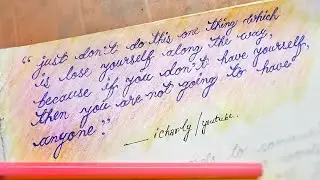 “ just don't do this one thing which
is lose yourself along the way,
because if you don't have yourself,
then you are not going to have
anyone."